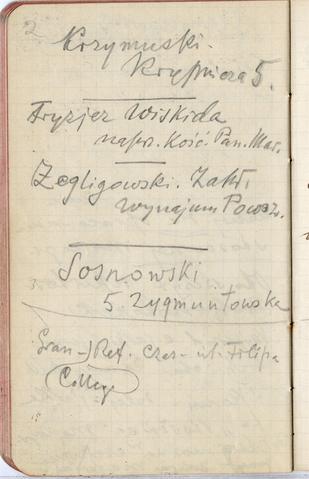 2
Krzymuski.
Krupnicza 5.
Fryzjer Wiskida
napr. Kość. Pan. Mar.
Żegligowski. Zakł.
wynajmu Powoz.
Sosnowski
5. Zygmuntowska
Ref. Czar- ul. Filipa
College